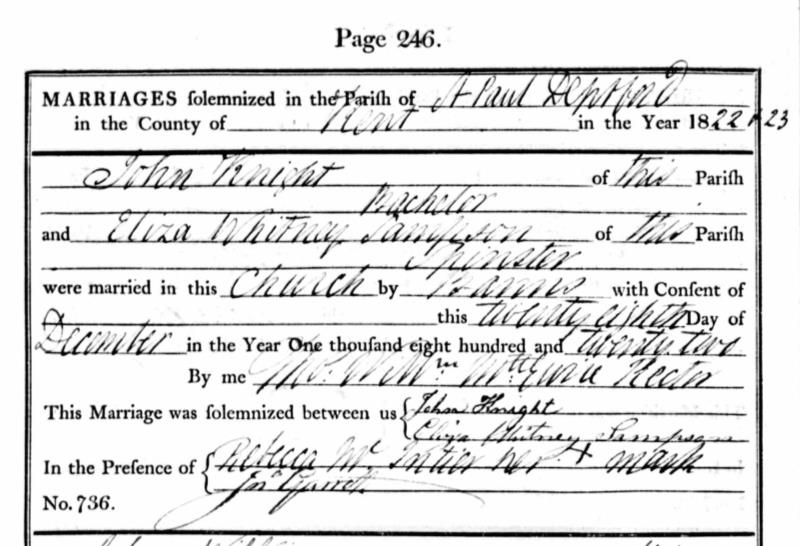 Page 246.
MARRIAGES solemnized in the Parish of St Paul Deptford
in the County of Kent in the Year 1822 & 23
John Knight of this Parish
Bachelor
and Eliza Whitney Sampson of this Parish
Spinster
were married in this Church by Banns with Consent of
this twenty eighth Day of
December in the Year One thousand eight hundred and twenty two
By me Rector
This Marriage was solemnized between us John Knight
Eliza Whitney Sampson
In the Presence of Rebecca her + mark
Jno Garrett
No. 736.